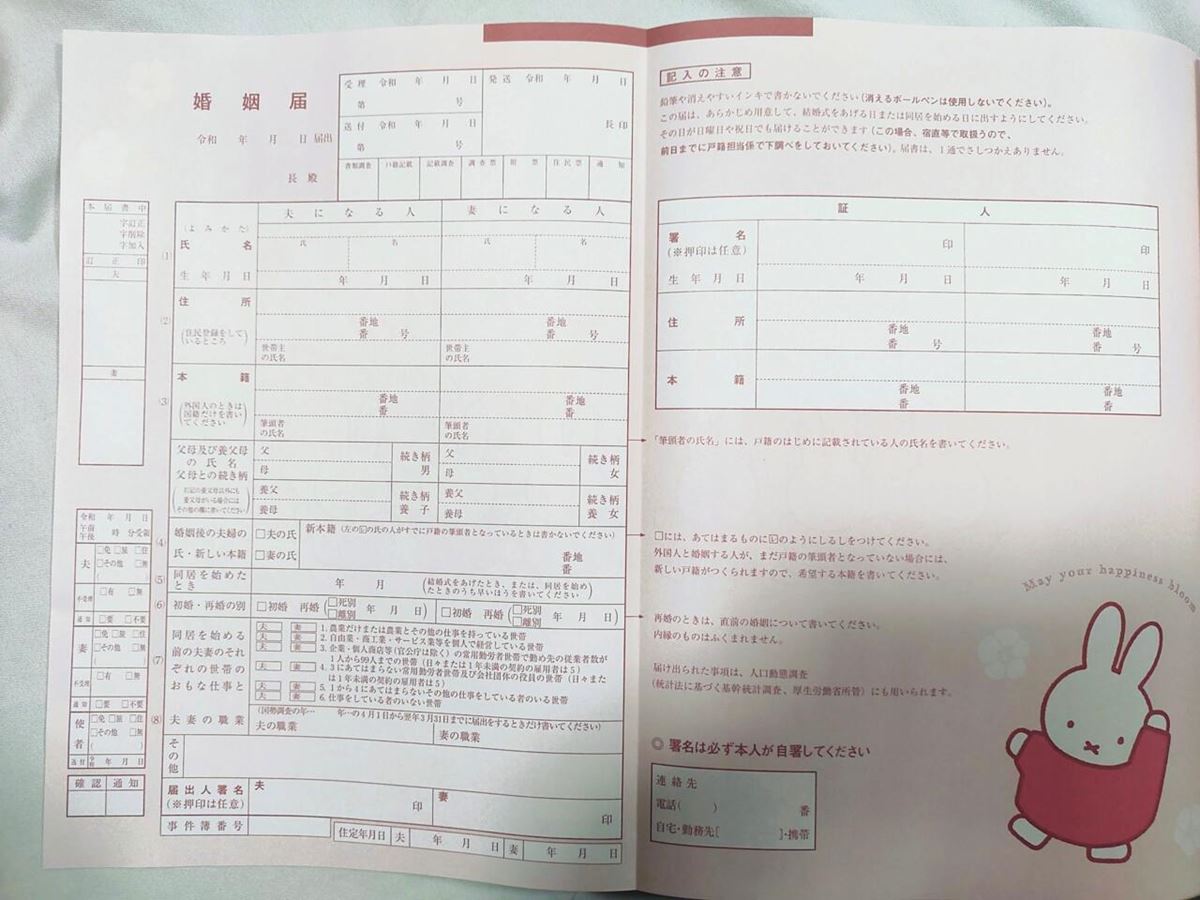 婚姻届
令和 年 月 日 届出
長 殿
受理 令和 年 月 日
第 号
送付 令和 年 月 日
第 号
発送 令和 年 月 日
長印
書類調査 戸籍記載 記載調査 調査票 附票 住民票 通知
本届書中
字訂正
字削除
字加入
訂正印
夫
妻
夫になる人 妻になる人
(1)
(よみかた)
氏名
氏 名 氏 名
生年月日 年 月 日 年 月 日
(2)
住所
(住民登録をしているところ)
番地 番地
番 号 番 号
世帯主の氏名 世帯主の氏名
(3)
本籍
(外国人のときは国籍だけを書いてください)
番地 番地
番 番
筆頭者の氏名 筆頭者の氏名
父母及び養父母の氏名
父母との続き柄
父 続き柄 父 続き柄
母 男 母 女
養父 続き柄 養父 続き柄
養母 養子 養母 養女
(4)
婚姻後の夫婦の氏・新しい本籍
□夫の氏
□妻の氏
新本籍(左の☑の氏の人がすでに戸籍の筆頭者となっているときは書かないでください)
番地
番
(5)
同居を始めたとき
年 月
(結婚式をあげたとき、または、同居を始めたときのうち早いほうを書いてください)
(6)
初婚・再婚の別
□初婚 再婚(□死別 □離別 年 月 日) □初婚 再婚(□死別 □離別 年 月 日)
(7)
同居を始める前の夫妻のそれぞれの世帯のおもな仕事と
夫 妻 1.農業だけまたは農業とその他の仕事を持っている世帯
夫 妻 2.自由業・商工業・サービス業等を個人で経営している世帯
夫 妻 3.企業・個人商店等(官公庁は除く)の常用勤労者世帯で勤め先の従業者数が1人から99人までの世帯(日々または1年未満の契約の雇用者は5)
夫 妻 4.3にあてはまらない常用勤労者世帯及び会社団体の役員の世帯(日々または1年未満の契約の雇用者は5)
夫 妻 5.1から4にあてはまらないその他の仕事をしている者のいる世帯
夫 妻 6.仕事をしている者のいない世帯
(8)
夫妻の職業
(国勢調査の年… 年…の4月1日から翌年3月31日までに届出をするときだけ書いてください)
夫の職業 妻の職業
その他
届出人署名
(※押印は任意)
夫 印 妻 印
事件簿番号
住定年月日 夫 年 月 日 妻 年 月 日
令和 年 月 日
午前 午後 時 分受領
夫
□免 □旅 □住
□その他 □無
( )
不受理 □有 □無
通知 □要 □不要
妻
□免 □旅 □住
□その他 □無
( )
不受理 □有 □無
通知 □要 □不要
使者
□免 □旅 □住
□その他 □無
( )
送付 令和 年 月 日
確認 通知
記入の注意
鉛筆や消えやすいインキで書かないでください(消えるボールペンは使用しないでください)。
この届は、あらかじめ用意して、結婚式をあげる日または同居を始める日に出すようにしてください。
その日が日曜日や祝日でも届けることができます(この場合、宿直等で取扱うので、
前日までに戸籍担当係で下調べをしておいてください)。届書は、1通でさしつかえありません。
証人
署名
(※押印は任意)
印 印
生年月日 年 月 日 年 月 日
住所
番地 番地
番 号 番 号
本籍
番地 番地
番 番
「筆頭者の氏名」には、戸籍のはじめに記載されている人の氏名を書いてください。
□には、あてはまるものに☑のようにしるしをつけてください。
外国人と婚姻する人が、まだ戸籍の筆頭者となっていない場合には、
新しい戸籍がつくられますので、希望する本籍を書いてください。
再婚のときは、直前の婚姻について書いてください。
内縁のものはふくまれません。
届け出られた事項は、人口動態調査
(統計法に基づく基幹統計調査、厚生労働省所管)にも用いられます。
May your happiness bloom
◎ 署名は必ず本人が自署してください
連絡先
電話( ) 番
自宅・勤務先[ ]・携帯